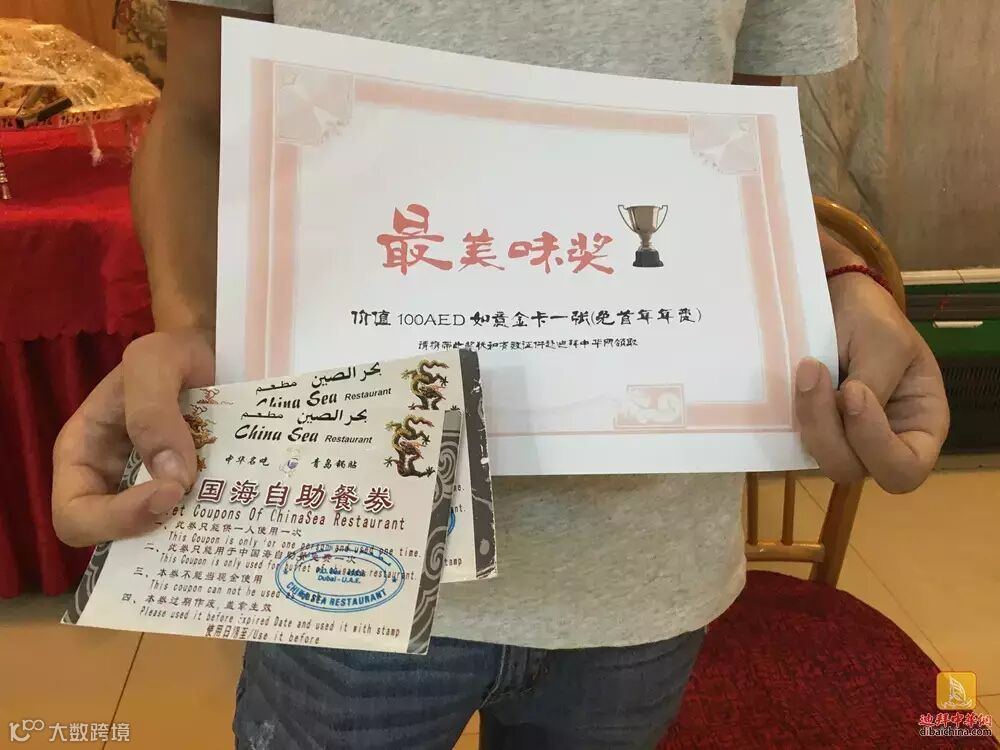 最美味奖
价值 100AED 如意金卡一张(免首年年费)
请携带此奖状和有效证件赴迪拜中华网领取
بحر الصين مطعم
China Sea Restaurant
بحر الصين مطعم
China Sea Restaurant
中华名吃 青岛锅贴
国海自助餐券
et Coupons Of ChinaSea Restaurant
一、此券只能供一人使用一次
This Coupon is only for one person and used one time.
二、此券只能用于中国海自助餐免费一次
This Coupon is only used for buffet restaurant.
三、本券不能当现金使用
This coupon can not be used as
四、本券过期作废,盖章生效
Please used it before Expired Date and used it with stamp
使用日得至/Use it before
Dubai - U.A.E.
CHINASEA RESTAURANT
time.
stamp
大数跨境
迪拜中华网
dibaichina.com